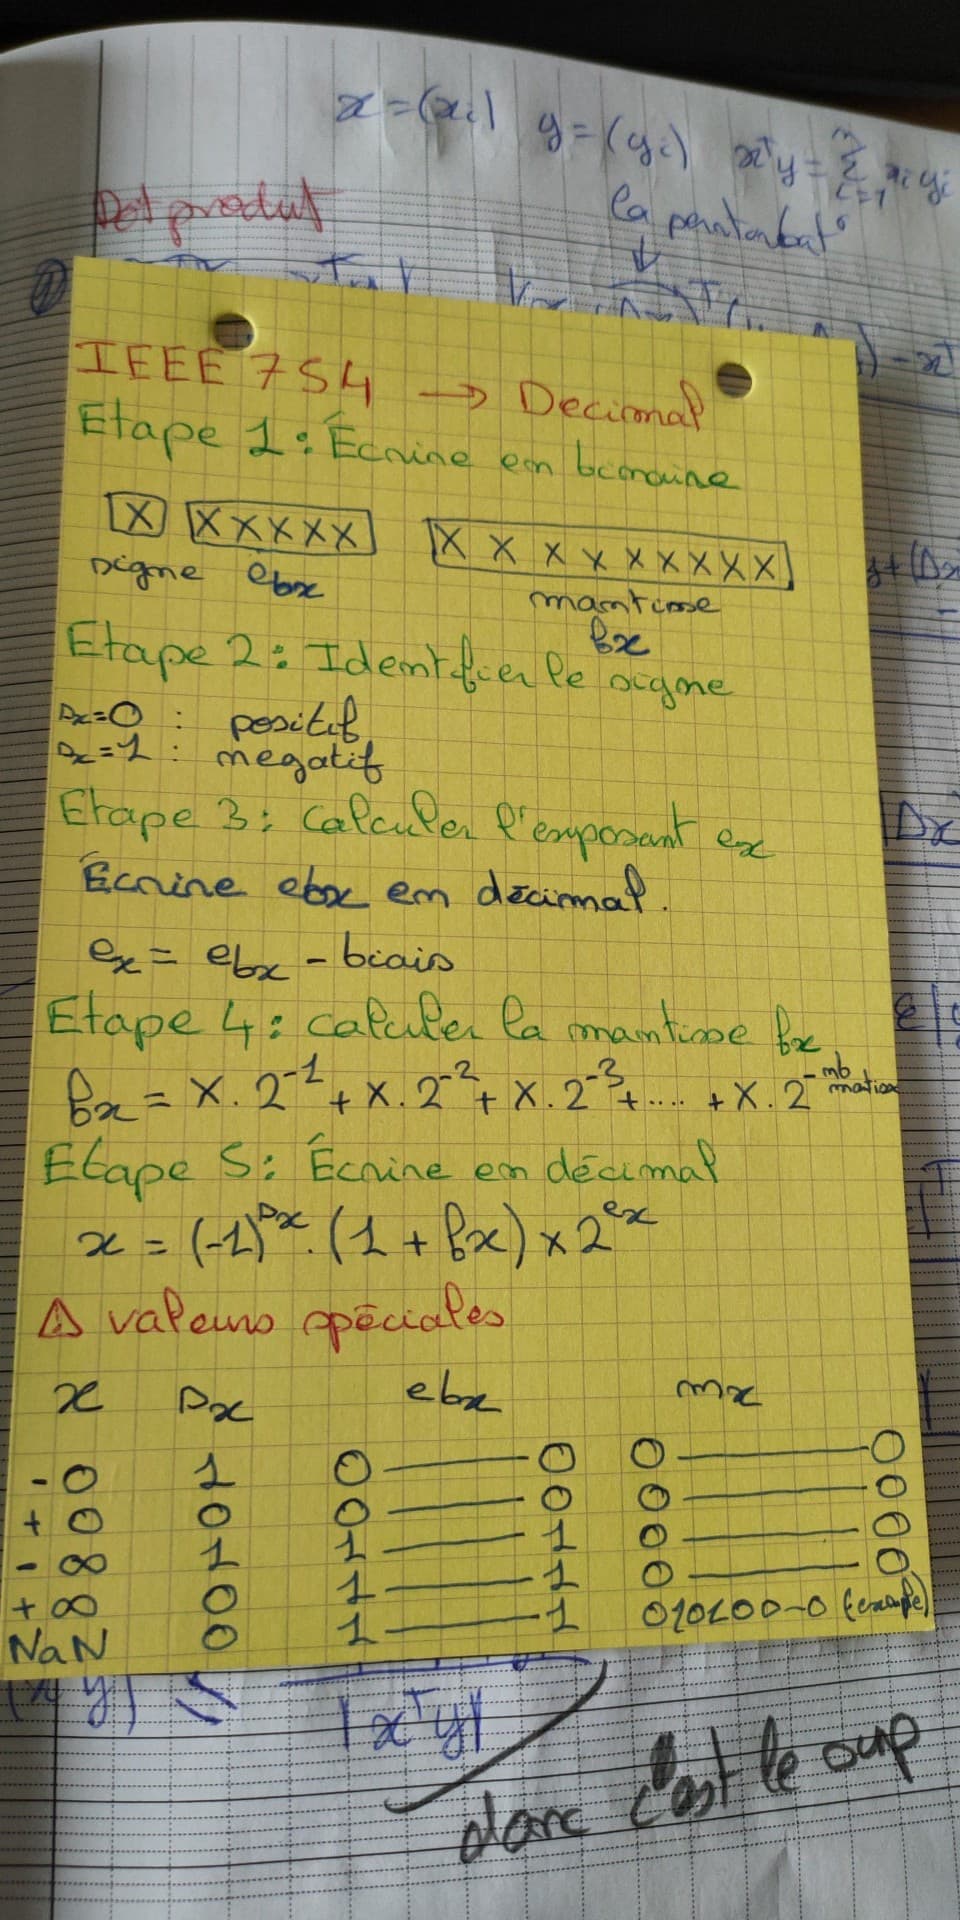 x = (xi) y = (yi) xᵀy = Σ xi yi
i=1
Dot produit
la perturbat°
↓
IEEE 754 → Decimal
Etape 1 : Écrire en binaire
X XXXXX XXXXXXXXX
signe ebx mantisse
fx
Etape 2 : Identifier le signe
sx=0 : positif
sx=1 : negatif
Etape 3 : Calculer l'exposant ex
Écrire ebx en décimal.
ex = ebx - biais
Etape 4 : calculer la mantisse fx
fx = X.2⁻¹ + X.2⁻² + X.2⁻³ + .... + X.2^-nb
Etape 5 : Écrire en décimal
x = (-1)^sx . (1 + fx) × 2^ex
⚠ valeurs spéciales
x sx ebx mx
-0 1 0——0 0——0
+0 0 0——0 0——0
-∞ 1 1——1 0——0
+∞ 0 1——1 0——0
NaN 0 1——1 010100-0 (exemple)
|xᵀy|
donc c'est le sup